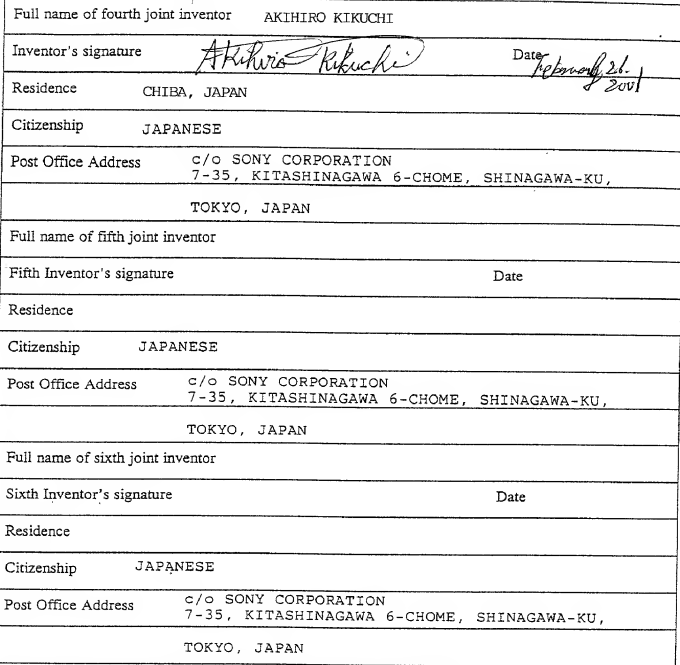 Full name of fourth joint inventor AKIHIRO KIKUCHI
Inventor's signature Akihiro Kikuchi Date February, 26. 2001
Residence CHIBA, JAPAN
Citizenship JAPANESE
Post Office Address c/o SONY CORPORATION
7-35, KITASHINAGAWA 6-CHOME, SHINAGAWA-KU,
TOKYO, JAPAN
Full name of fifth joint inventor
Fifth Inventor's signature Date
Residence
Citizenship JAPANESE
Post Office Address c/o SONY CORPORATION
7-35, KITASHINAGAWA 6-CHOME, SHINAGAWA-KU,
TOKYO, JAPAN
Full name of sixth joint inventor
Sixth Inventor's signature Date
Residence
Citizenship JAPANESE
Post Office Address c/o SONY CORPORATION
7-35, KITASHINAGAWA 6-CHOME, SHINAGAWA-KU,
TOKYO, JAPAN